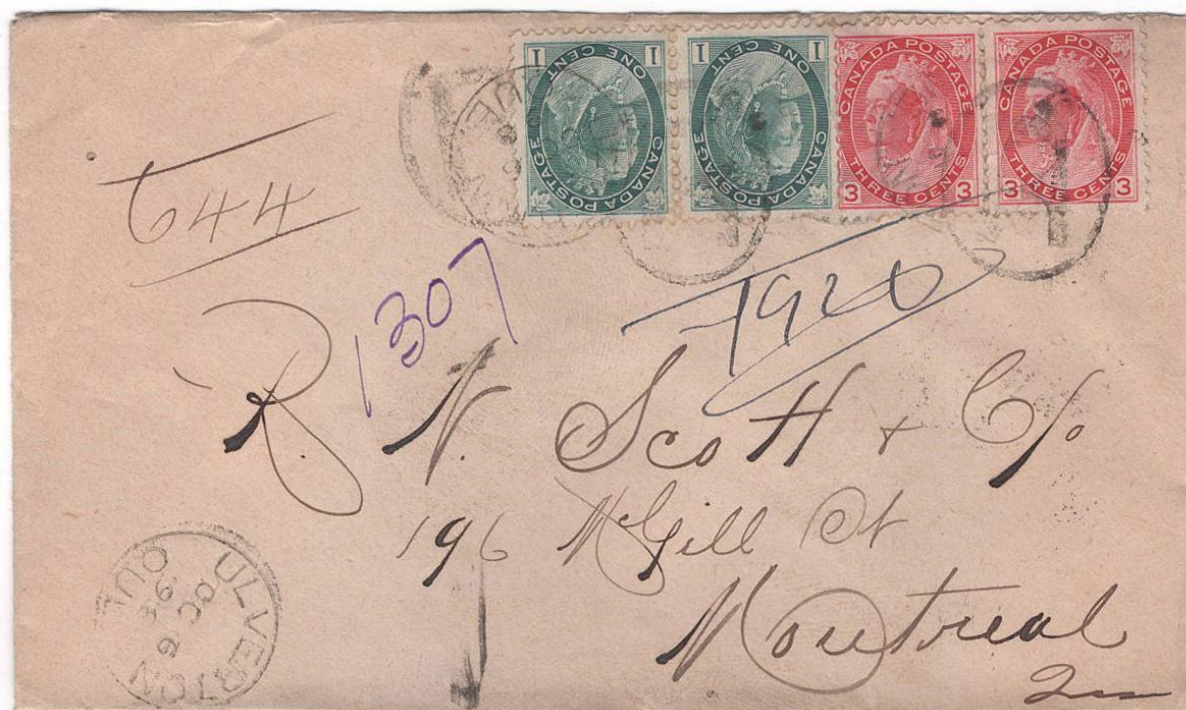 1 ONE CENT 1
CANADA POSTAGE
1 ONE CENT 1
CANADA POSTAGE
CANADA POSTAGE
3 THREE CENTS 3
CANADA POSTAGE
3 THREE CENTS 3
644
1307
1920
R. N. Scott + C/o
196 McGill St
Montreal
Que
ULVERTON
OC
QUE